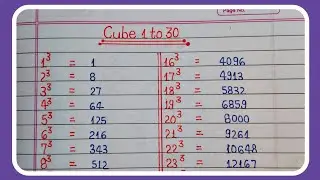 Page No.
Cube 1 to 30
1³ = 1
2³ = 8
3³ = 27
4³ = 64
5³ = 125
6³ = 216
7³ = 343
8³ = 512
16³ = 4096
17³ = 4913
18³ = 5832
19³ = 6859
20³ = 8000
21³ = 9261
22³ = 10648
23³ = 12167